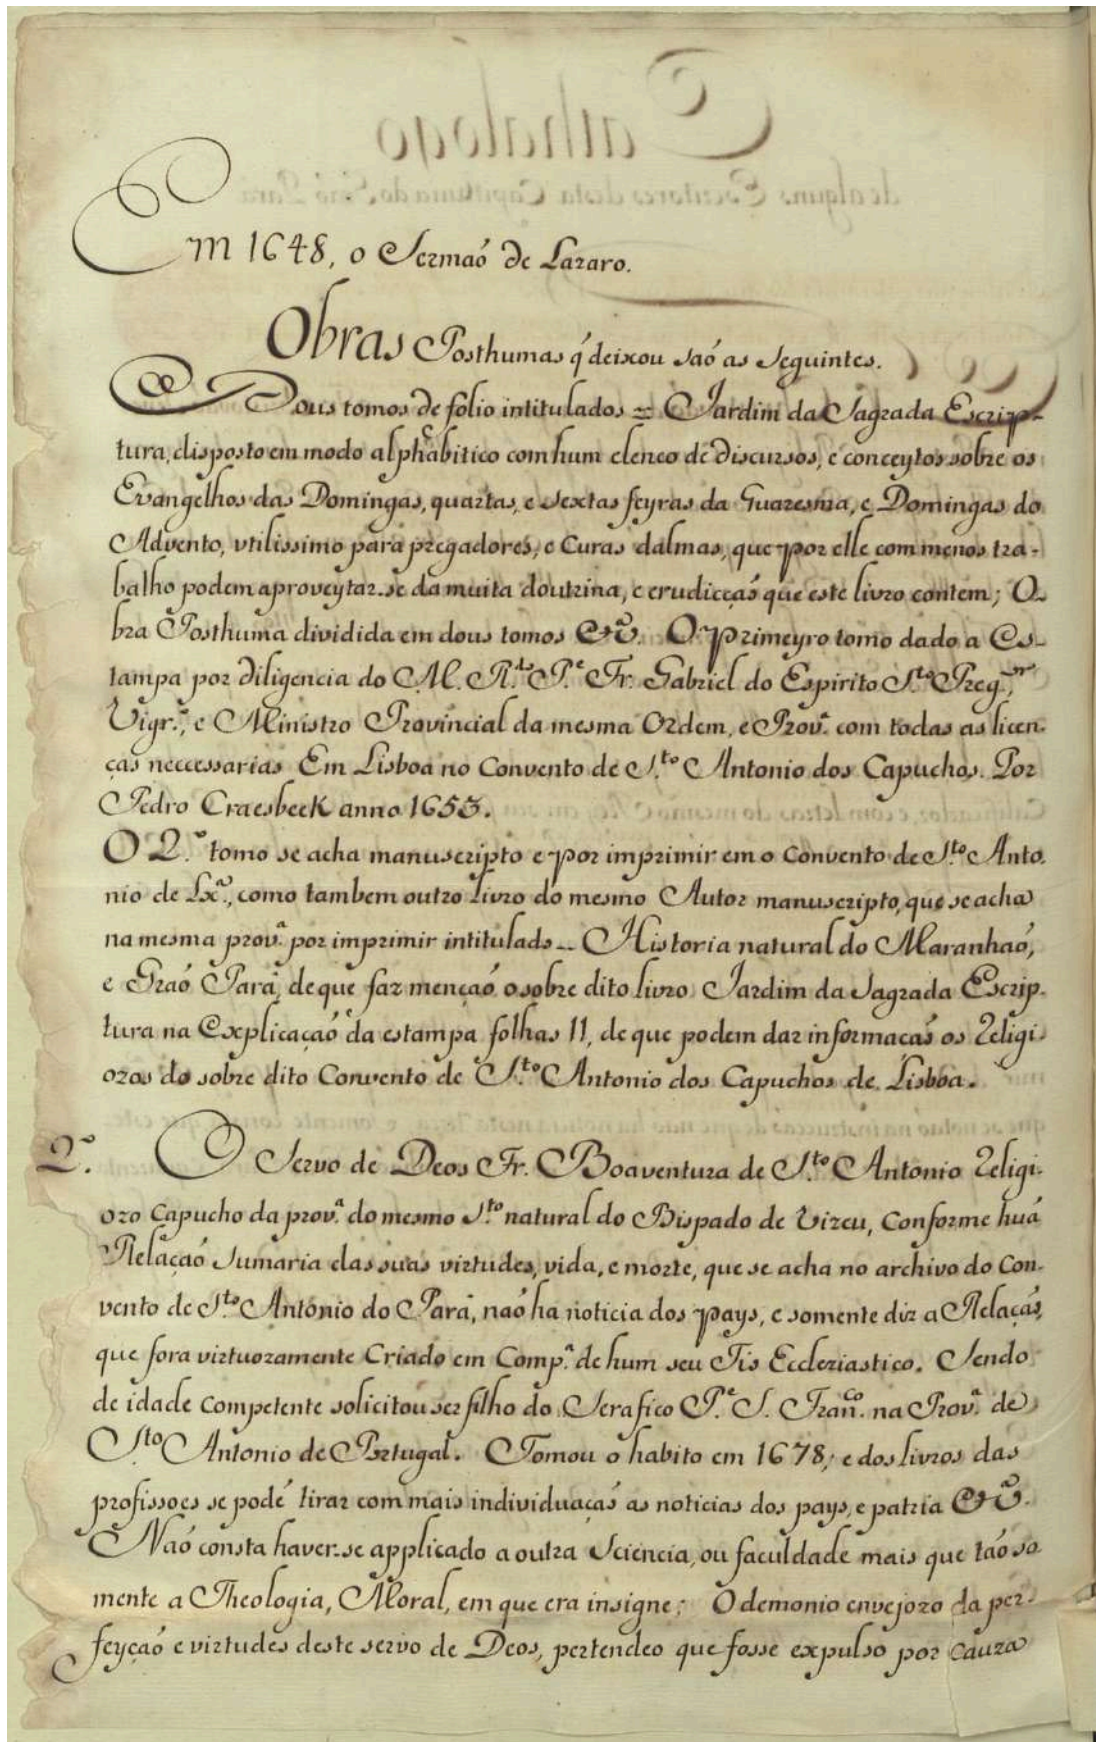 Em 1648, o Sermaõ de Lazaro.
Obras Posthumas q̃ deixou saõ as seguintes.
Dous tomos de folio intitulados = Jardim da Sagrada Escrip-
tura, disposto em modo alphabitico com hum elenco de discursos, e conceytos sobre os
Evangelhos das Domingas, quartas, e sextas feyras da Quaresma, e Domingas do
Advento, vtilissimo para pregadores, e Curas dalmas, que por elle com menos tra-
balho podem aproveytar-se da muita doutrina, e erudicçaõ que este livro contem; O-
bra Posthuma dividida em dous tomos &ª. O Primeyro tomo dado a Es-
tampa por diligencia do M. R.do P.e Fr. Gabriel do Espirito S.to Preg.or,
Vigr.º, e Ministro Provincial da mesma Ordem, e Prov.ª com todas as licen-
ças neccessarias Em Lisboa no Convento de S.to Antonio dos Capuchos. Por
Pedro Craesbeek anno 1653.
O 2.º tomo se acha manuscripto e por imprimir em o Convento de S.to Anto.
nio de Lx.ª, como tambem outro livro do mesmo Autor manuscripto, que se acha
na mesma prov.ª por imprimir intitulado = Historia natural do Maranhaõ,
e Graõ Pará, de que faz mençaõ o sobre dito livro Jardim da Sagrada Escrip-
tura na Explicaçaõ da estampa folhas 11, de que podem dar informaçaõ os Religi-
ozos do sobre dito Convento de S.to Antonio dos Capuchos de Lisboa.
2.º O Servo de Deos Fr. Boaventura de S.to Antonio Religi-
ozo Capucho da prov.ª do mesmo S.to natural do Bispado de Vizeu, Conforme huã
Relaçaõ Sumaria das suas virtudes, vida, e morte, que se acha no archivo do Con-
vento de S.to Antonio do Pará, naõ ha noticia dos pays, e somente diz a Relaçaõ,
que fora virtuozamente Criado em Comp.ª de hum seu Tio Eccleziastico. Sendo
de idade Competente solicitou ser filho do Serafico P.e S. Fran.co na Prov.ª de
S.to Antonio de Portugal. Tomou o habito em 1678; e dos livros das
profissoes se pode tirar com mais individuaçaõ as noticias dos pays, e patria &ª.
Naõ consta haver-se applicado a outra Sciencia, ou faculdade mais que taõ so
mente a Theologia, Moral, em que era insigne; O demonio envejozo da per-
feyçaõ e virtudes deste servo de Deos, pertendeo que fosse expulso por cauza